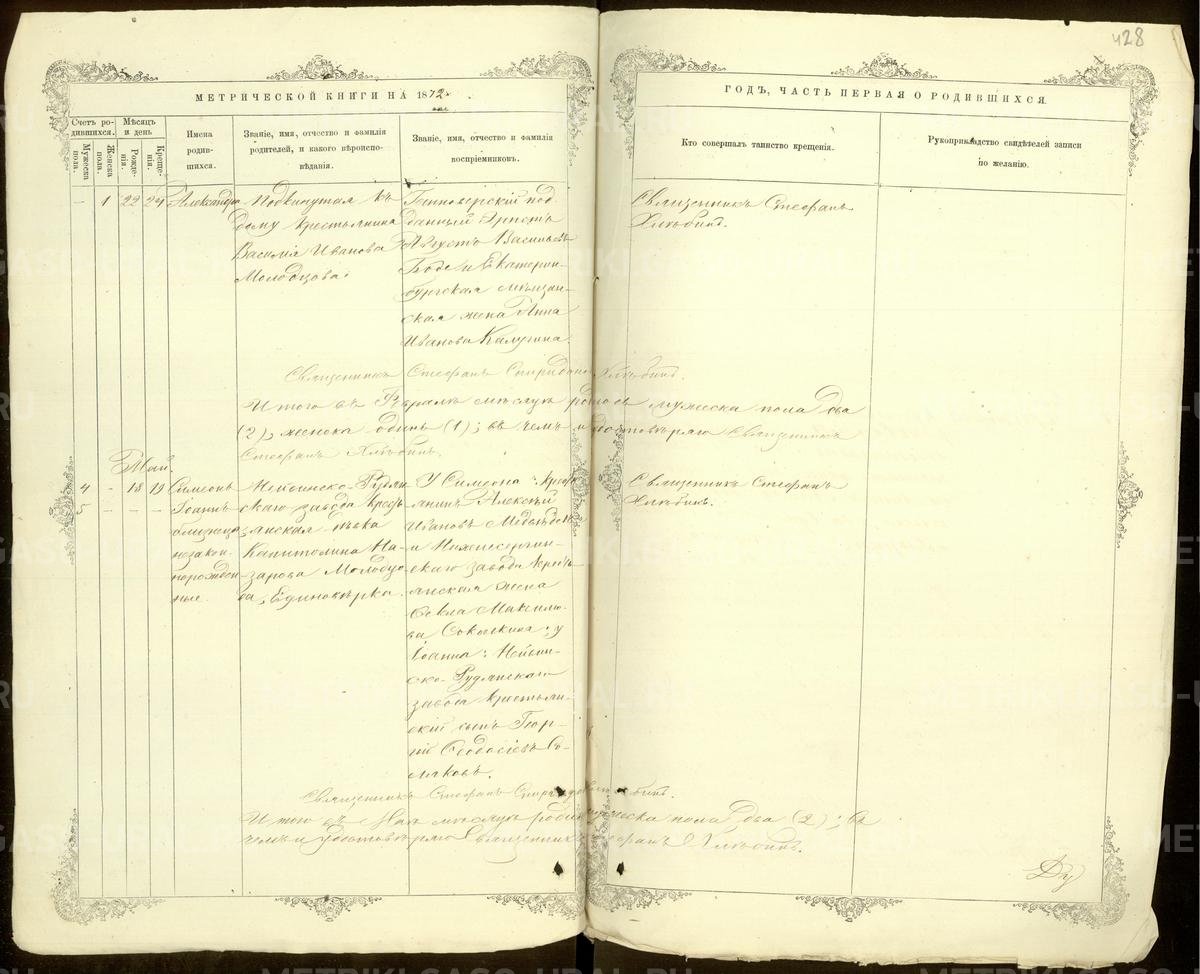 428
МЕТРИЧЕСКОЙ КНИГИ НА 1872
ГОДЪ, ЧАСТЬ ПЕРВАЯ О РОДИВШИХСЯ.
Счетъ родившихся.
Мужеска пола.
Женска пола.
Мѣсяцъ и день
Рожденія.
Крещенія.
Имена родившихся.
Званіе, имя, отчество и фамилія родителей, и какого вѣроисповѣданія.
Званіе, имя, отчество и фамилія воспріемниковъ.
Кто совершалъ таинство крещенія.
Рукоприкладство свидѣтелей записи по желанію.
— 1 22 24 Александра
Подкинутая къ
дому крестьянина
Василія Иванова
Молодцова.
Ганноверскій под
данный Эрнстъ
Августъ Васильевъ
Боде и Екатерин-
бургская мѣщан-
ская жена Анна
Иванова Калугина.
Священникъ Стефанъ
Хлѣбинъ.
Священникъ Стефанъ Спиридоновъ Хлѣбинъ.
Итого въ Февралѣ мѣсяцѣ родилось мужеска пола два
(2), женска одинъ (1); въ чемъ и удостовѣряю Священникъ
Стефанъ Хлѣбинъ.
Май.
4 - 18 19 Симеонъ
5 — — — Іоаннъ
близнецы
незакон-
норожден-
ные.
Нейвинско-Рудян
скаго завода крест
янская дѣвка
Капитолина На-
зарова Молодцо
ва, Единовѣрка.
У Симеона: крест
янинъ Алексѣй
Ивановъ
и Нижнесергин-
скаго завода крест
янская жена
Ѳекла Максимо-
ва; у
Іоанна: Нейвин-
ско-Рудянскаго
завода крестьян-
скій сынъ Геор-
гій Ѳеодосіевъ
Священникъ Стефанъ
Хлѣбинъ.
Священникъ Стефанъ Спиридоновъ Хлѣбинъ.
Итого въ Маѣ мѣсяцѣ родилось мужеска пола два (2); въ
чемъ и удостовѣряю Священникъ Стефанъ Хлѣбинъ.
Ду
METRIKI.GASO-URAL.RU